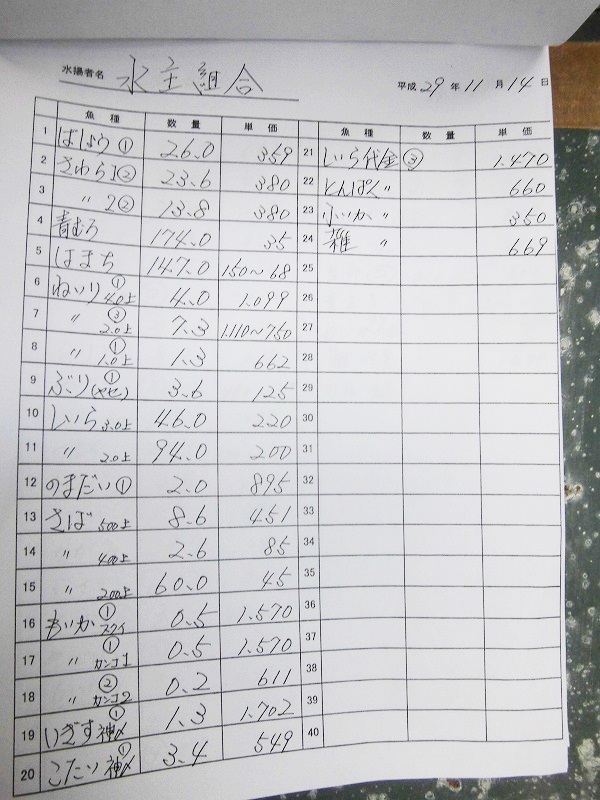 水揚者名 水主組合
平成29年11月14日
魚種 数量 単価 魚種 数量 単価
1 はしょう① 26.0 359 21 しいら代金③ 1.470
2 さわら1② 23.6 380 22 とんぱく〃 660
3 〃 2② 13.8 380 23 ふいか〃 350
4 青むろ 174.0 35 24 雑〃 669
5 はまち 147.0 150〜68 25
6 ねいり①4.0上 4.0 1.099 26
7 〃 ③2.0上 7.3 1.110〜750 27
8 〃 ①1.0上 1.3 662 28
9 ぶり①(ヤセ) 3.6 125 29
10 しいら3.0上 46.0 220 30
11 〃 2.0上 94.0 200 31
12 のまだい① 2.0 895 32
13 さば500上 8.6 451 33
14 〃 400上 2.6 85 34
15 〃 200上 60.0 45 35
16 あいか① スケイ 0.5 1.570 36
17 〃 ①カンコ1 0.5 1.570 37
18 〃 ②カンコ2 0.2 611 38
19 いぎす神〆① 1.3 1.702 39
20 こたい神〆① 3.4 549 40